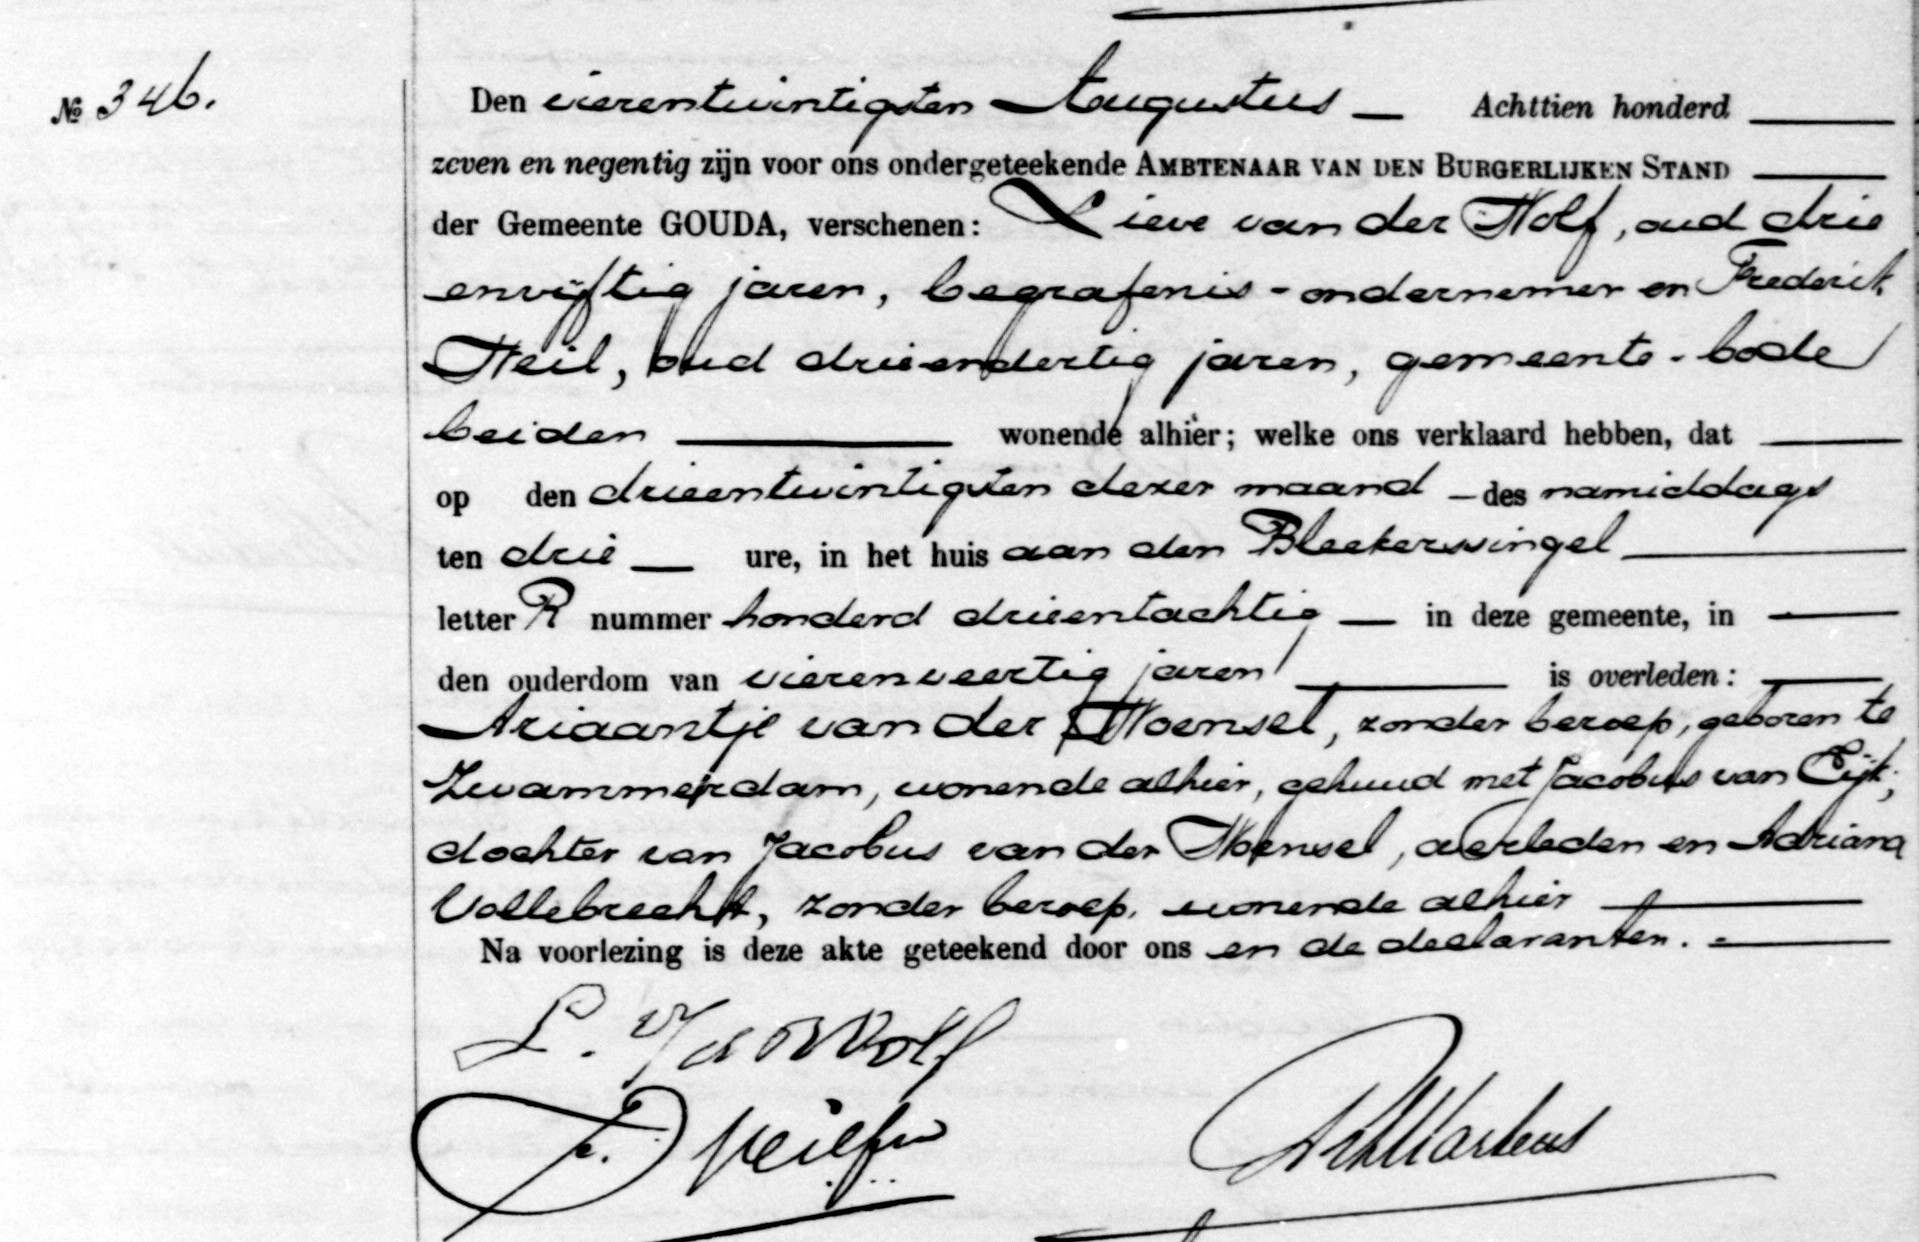 № 346.
Den vierentwintigsten Augustus — Achttien honderd
zeven en negentig zijn voor ons ondergeteekende AMBTENAAR VAN DEN BURGERLIJKEN STAND
der Gemeente GOUDA, verschenen: Lieve van der Wolf, oud drie
envijftig jaren, begrafenis-ondernemer en Frederik
Weil, oud drieendertig jaren, gemeente-bode
beiden wonende alhier; welke ons verklaard hebben, dat
op den drieentwintigsten dezer maand – des namiddags
ten drie — ure, in het huis aan den Bleekerssingel
letter R nummer honderd drieentachtig — in deze gemeente, in
den ouderdom van vierenveertig jaren is overleden:
Ariaantje van der Woensel, zonder beroep, geboren te
Zwammerdam, wonende alhier, gehuwd met Jacobus van Eijk;
dochter van Jacobus van der Woensel, overleden en Adriana
Vollebrecht, zonder beroep, wonende alhier
Na voorlezing is deze akte geteekend door ons en de declaranten.
L. v d Wolf
F. Weil